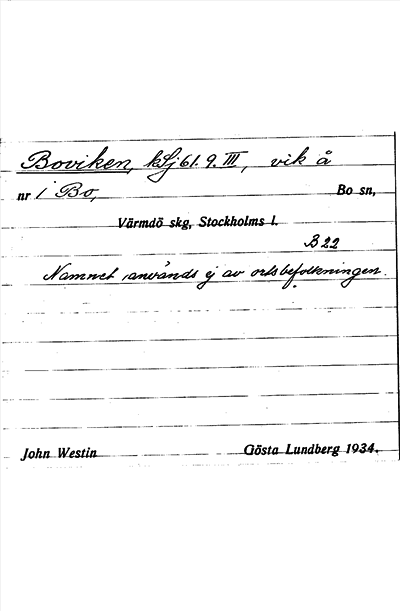 Boviken, kSj 61. 9. III, vik å
nr 1 Bo, Bo sn,
Värmdö skg, Stockholms l.
B 22
Namnet användes ej av ortsbefolkningen.
John Westin Gösta Lundberg 1934.